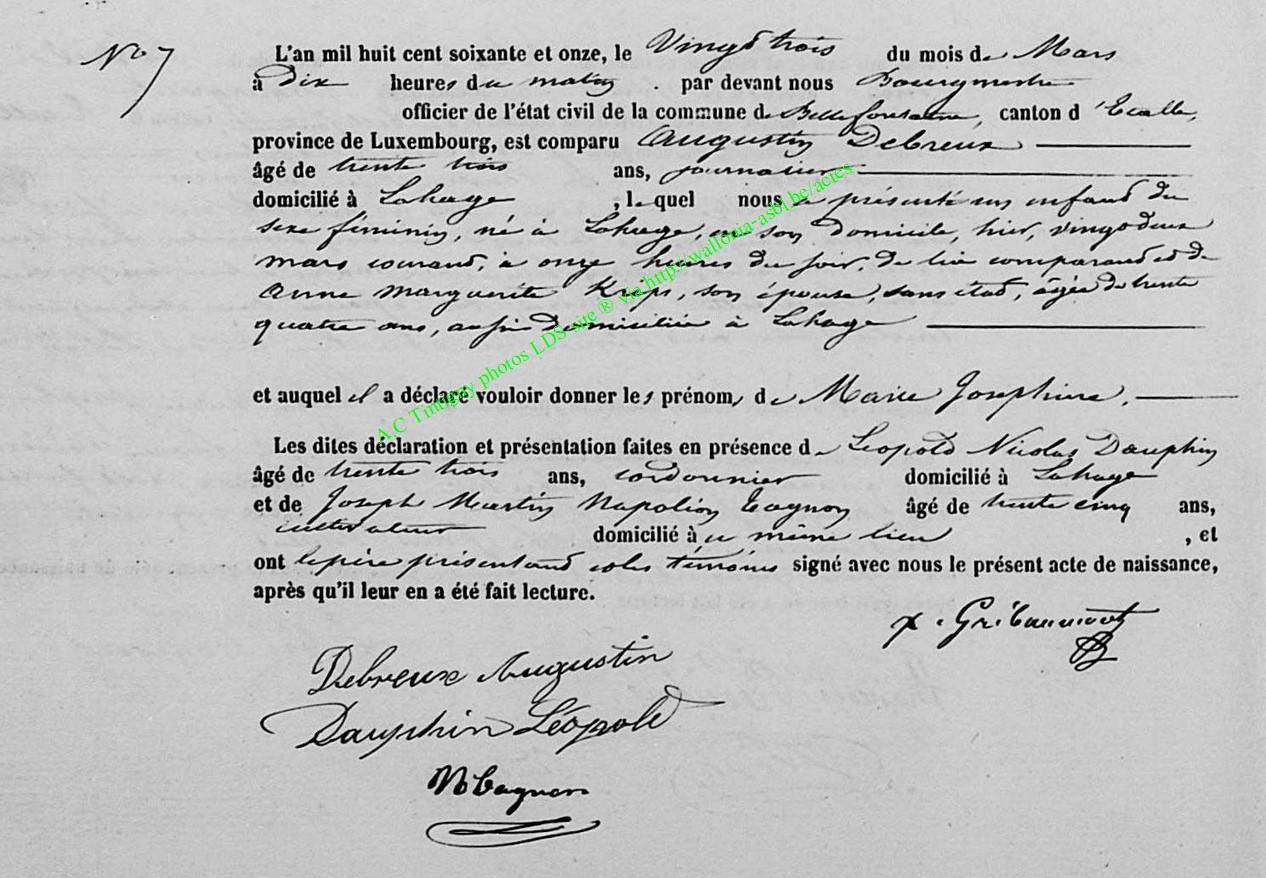 No 7
L'an mil huit cent soixante et onze, le Vingt trois du mois de Mars
à Dix heures du matin par devant nous Bourgmestre
officier de l'état civil de la commune de Bellefontaine, canton d'Etalle,
province de Luxembourg, est comparu Augustin Debreux
âgé de trente trois ans, journalier
domicilié à Lahage, lequel nous a présenté un enfant du
sexe féminin, né à Lahage, en son domicile, hier, vingt deux
mars courant, à onze heures du soir, de lui comparant et de
Anne Marguerite Krips, son épouse, sans état, âgée de trente
quatre ans, aussi domiciliée à Lahage
et auquel il a déclaré vouloir donner les prénoms de Marie Josephine.
Les dites déclaration et présentation faites en présence de Léopold Nicolas Dauphin
âgé de trente trois ans, cordonnier domicilié à Lahage
et de Joseph Martin Napoléon âgé de trente cinq ans,
cultivateur domicilié à ce même lieu, et
ont le père présentant et les témoins signé avec nous le présent acte de naissance,
après qu'il leur en a été fait lecture.
Debreux Augustin
Dauphin Léopold
A.C Tintigny photos LDS-site ® via http://wallonia-asbl.be/actes